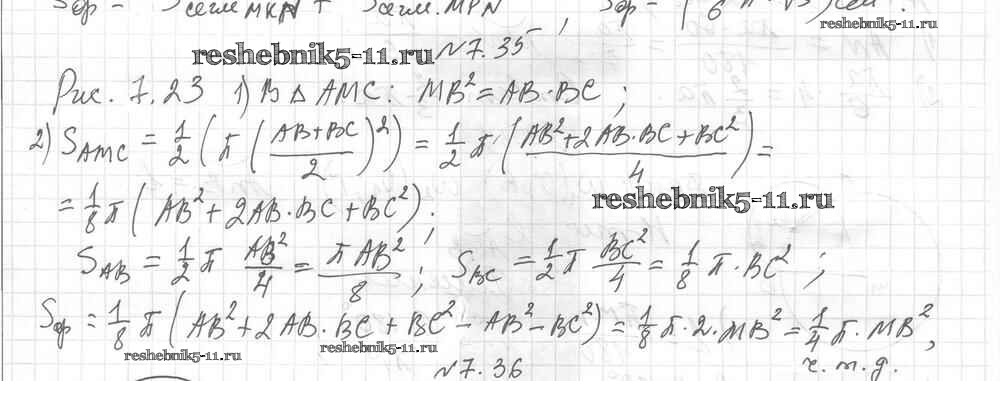 Sф = Sсегм MKN + Sсегм. MPN ,
reshebnik5-11.ru
reshebnik5-11.ru
№7.35
Рис. 7.23 1) В △ AMC: MB² = AB·BC ;
2) S_AMC = 1/2 (π ((AB+BC)/2)²) = 1/2 π ((AB²+2AB·BC+BC²)/4) =
reshebnik5-11.ru
= 1/8 π (AB² + 2AB·BC + BC²);
S_AB = 1/2 π AB²/4 = πAB²/8 ; S_BC = 1/2 π BC²/4 = 1/8 π·BC² ;
Sф = 1/8 π (AB² + 2AB·BC + BC² - AB² - BC²) = 1/8 π·2·MB² = 1/4 π·MB²,
reshebnik5-11.ru reshebnik5-11.ru
ч.т.д.
№7.36